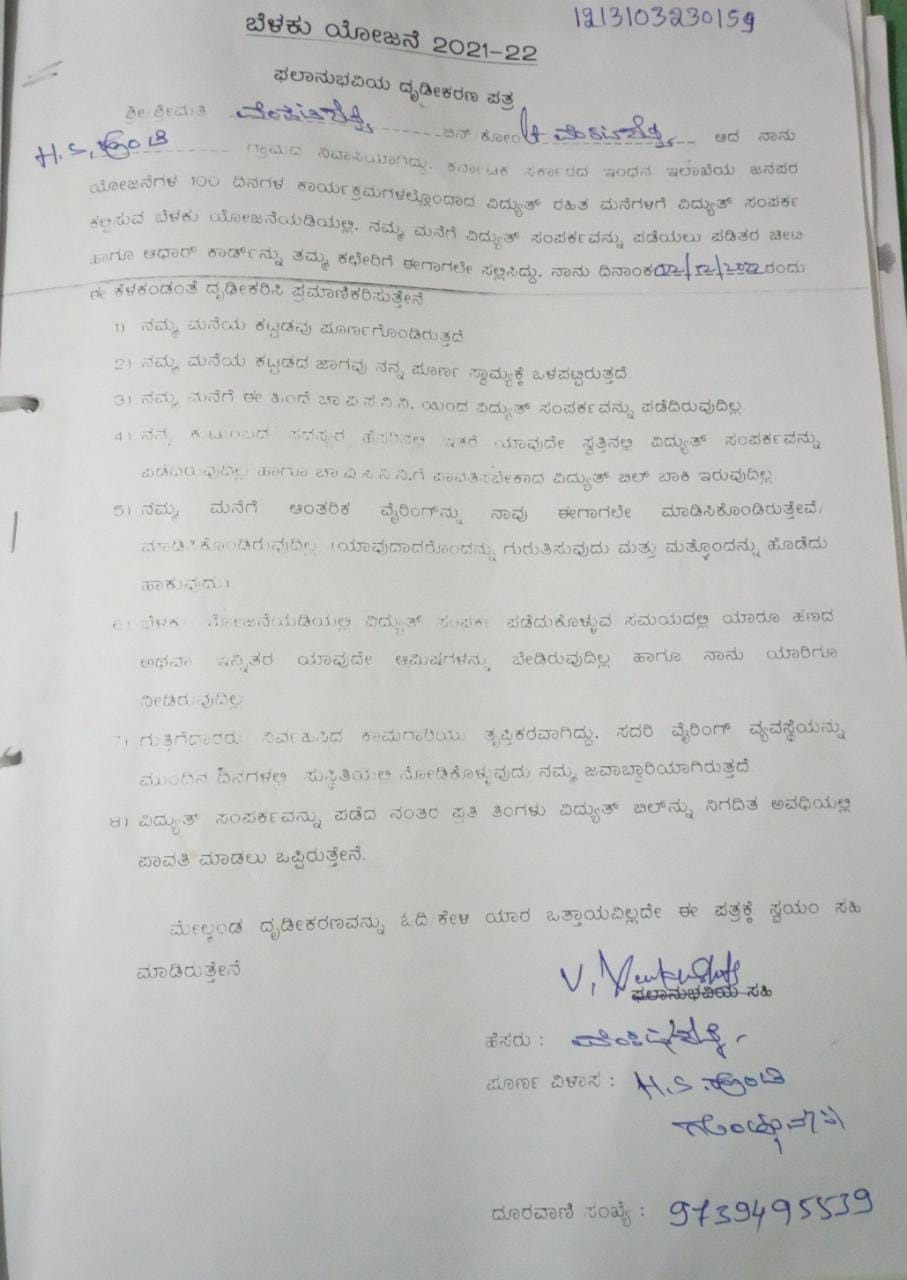 1213103230159
ಬೆಳಕು ಯೋಜನೆ 2021-22
ಫಲಾನುಭವಿಯ ದೃಡೀಕರಣ ಪತ್ರ
ಶ್ರೀ/ಶ್ರೀಮತಿ ಬಿನ್ ಕೋಂ ಆದ ನಾನು
H.S. ಗ್ರಾಮದ ನಿವಾಸಿಯಾಗಿದ್ದು, ಕರ್ನಾಟಕ ಸರ್ಕಾರದ ಇಂಧನ ಇಲಾಖೆಯ ಜನಪರ
ಯೋಜನೆಗಳ 100 ದಿನಗಳ ಕಾರ್ಯಕ್ರಮಗಳಲ್ಲೊಂದಾದ ವಿದ್ಯುತ್ ರಹಿತ ಮನೆಗಳಿಗೆ ವಿದ್ಯುತ್ ಸಂಪರ್ಕ
ಕಲ್ಪಿಸುವ ಬೆಳಕು ಯೋಜನೆಯಡಿಯಲ್ಲಿ, ನಮ್ಮ ಮನೆಗೆ ವಿದ್ಯುತ್ ಸಂಪರ್ಕವನ್ನು ಪಡೆಯಲು ಪಡಿತರ ಚೀಟಿ
ಹಾಗೂ ಆಧಾರ್ ಕಾರ್ಡ್‌ನ್ನು ತಮ್ಮ ಕಛೇರಿಗೆ ಈಗಾಗಲೇ ಸಲ್ಲಿಸಿದ್ದು, ನಾನು ದಿನಾಂಕ ರಂದು
ಈ ಕೆಳಕಂಡಂತೆ ದೃಢೀಕರಿಸಿ ಪ್ರಮಾಣಿಕರಿಸುತ್ತೇನೆ
1) ನಮ್ಮ ಮನೆಯ ಕಟ್ಟಡವು ಪೂರ್ಣಗೊಂಡಿರುತ್ತದೆ
2) ನಮ್ಮ ಮನೆಯ ಕಟ್ಟಡದ ಜಾಗವು ನನ್ನ ಪೂರ್ಣ ಸ್ವಾಮ್ಯಕ್ಕೆ ಒಳಪಟ್ಟಿರುತ್ತದೆ.
3) ನಮ್ಮ ಮನೆಗೆ ಈ ಹಿಂದೆ ಚಾ.ವಿ.ಸ.ನಿ.ನಿ. ಯಿಂದ ವಿದ್ಯುತ್ ಸಂಪರ್ಕವನ್ನು ಪಡೆದಿರುವುದಿಲ್ಲ
4) ನನ್ನ ಕುಟುಂಬದ ಸದಸ್ಯರ ಹೆಸರಿನಲ್ಲಿ ಇತರೆ ಯಾವುದೇ ಸ್ವತ್ತಿನಲ್ಲಿ ವಿದ್ಯುತ್ ಸಂಪರ್ಕವನ್ನು
ಪಡೆದಿರುವುದಿಲ್ಲ ಹಾಗೂ ಚಾ.ವಿ.ಸ.ನಿ.ನಿ.ಗೆ ಪಾವತಿಸಬೇಕಾದ ವಿದ್ಯುತ್ ಬಿಲ್ ಬಾಕಿ ಇರುವುದಿಲ್ಲ.
5) ನಮ್ಮ ಮನೆಗೆ ಆಂತರಿಕ ವೈರಿಂಗ್‌ನ್ನು ನಾವು ಈಗಾಗಲೇ ಮಾಡಿಸಿಕೊಂಡಿರುತ್ತೇವೆ/
ಮಾಡಿಸಿಕೊಂಡಿರುವುದಿಲ್ಲ (ಯಾವುದಾದರೊಂದನ್ನು ಗುರುತಿಸುವುದು ಮತ್ತು ಮತ್ತೊಂದನ್ನು ಹೊಡೆದು
ಹಾಕುವುದು)
6) ಬೆಳಕು ಯೋಜನೆಯಡಿಯಲ್ಲಿ ವಿದ್ಯುತ್ ಸಂಪರ್ಕ ಪಡೆದುಕೊಳ್ಳುವ ಸಮಯದಲ್ಲಿ ಯಾರೂ ಹಣದ
ಅಥವಾ ಇನ್ನಿತರ ಯಾವುದೇ ಆಮಿಷಗಳನ್ನು ಬೇಡಿರುವುದಿಲ್ಲ ಹಾಗೂ ನಾನು ಯಾರಿಗೂ
ನೀಡಿರುವುದಿಲ್ಲ
7) ಗುತ್ತಿಗೆದಾರರು ನಿರ್ವಹಿಸಿದ ಕಾಮಗಾರಿಯು ತೃಪ್ತಿಕರವಾಗಿದ್ದು, ಸದರಿ ವೈರಿಂಗ್ ವ್ಯವಸ್ಥೆಯನ್ನು
ಮುಂದಿನ ದಿನಗಳಲ್ಲಿ ಸುಸ್ಥಿತಿಯಲ್ಲಿ ನೋಡಿಕೊಳ್ಳುವುದು ನಮ್ಮ ಜವಾಬ್ದಾರಿಯಾಗಿರುತ್ತದೆ.
8) ವಿದ್ಯುತ್ ಸಂಪರ್ಕವನ್ನು ಪಡೆದ ನಂತರ ಪ್ರತಿ ತಿಂಗಳು ವಿದ್ಯುತ್ ಬಿಲ್‌ನ್ನು ನಿಗದಿತ ಅವಧಿಯಲ್ಲಿ
ಪಾವತಿ ಮಾಡಲು ಒಪ್ಪಿರುತ್ತೇನೆ.
ಮೇಲ್ಕಂಡ ದೃಡೀಕರಣವನ್ನು ಓದಿ/ಕೇಳಿ ಯಾರ ಒತ್ತಾಯವಿಲ್ಲದೇ ಈ ಪತ್ರಕ್ಕೆ ಸ್ವಯಂ ಸಹಿ
ಮಾಡಿರುತ್ತೇನೆ
ಫಲಾನುಭವಿಯ ಸಹಿ
ಹೆಸರು :
ಪೂರ್ಣ ವಿಳಾಸ : H.S.
ದೂರವಾಣಿ ಸಂಖ್ಯೆ : 9739495539